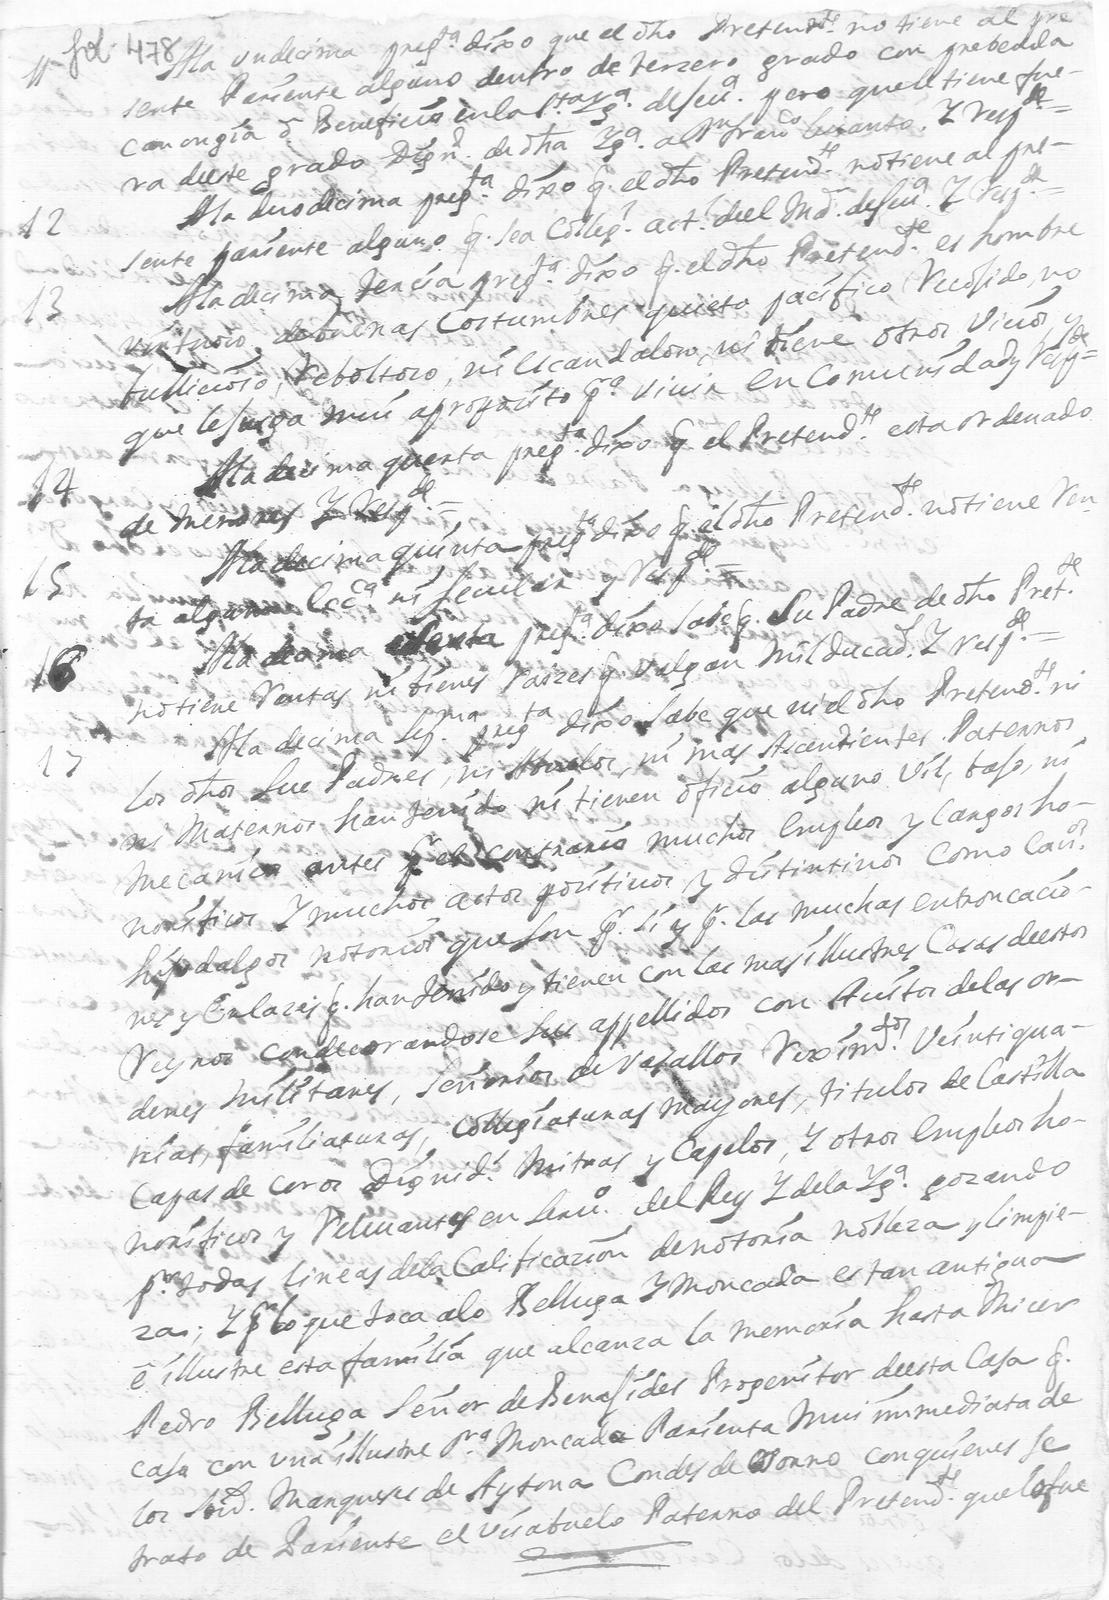 fol. 478
11 Ala undecima preg.ta dixo que el dho Pretend.te no tiene al pre
sente Pariente alguno dentro de terzero grado con prebenda
canongia ô Beneficio en la S.ta Yg.a de Seu.a pero que le tiene fue-
ra de este grado Dign. de dha Yg.a Y resp.de =
12 Ala duodecima preg.ta dixo q. el dho Pretend.te no tiene al pre-
sente pariente alguno q. sea Colleg.l act.l de el de Seu.a Y resp.de =
13 Ala decima tercia preg.ta dixo q. el dho Pretend.te es hombre
virtuoso, de buenas Costumbres quieto pacifico, Recosido, no
bullicioso, Reboltoso, ni escandaloso, ni tiene otros Vicios, y
que le juzga mui aproposito p.a vivir en Comunidad y Resp.de =
14 Ala decima quarta preg.ta dixo q. el Pretend.te esta ordenado
de menores Y Resp.de =
15 Ala decima quinta preg.ta dixo q. el dho Pretend.te no tiene Ren-
ta alguna Ecc.a ni Secular y Resp.de =
16 Ala decima sexta preg.ta dixo sabe q. Su Padre de dho Pret.te
no tiene Rentas ni bienes raizes q. valgan mil ducad.s Y Resp.de =
17 Ala decima sep.ma preg.ta dixo sabe que ni el dho Pretend.te ni
los dhos sus Padres, ni Abuelos, ni mas Ascendientes Paternos
ni Maternos han tenido ni tienen oficio alguno vil, baso, ni
mecanico antes p.r el contrario muchos empleos y cargos ho-
norificos Y muchos actos positivos y distintivos como Cau.os
hijosdalgos notorios que son p.r si y p.r las muchas entroncacio-
nes y Enlazes q. han tenido y tienen con las mas illustres Casas de estos
Reynos condecorandose sus appellidos con Auitos de las or-
denes militares, Señorios de Vasallos Veintiqua-
trias, familiaturas, Collegiaturas mayores, titulos de Castilla
Capas de coros Dignid.s Mitras y Capelos, Y otros empleos ho-
norificos y Relevantes en seru.o del Rey Y de la Yg.a gozando
p.r todas lineas de la Calificazion de notoria nobleza y limpie-
za; Y p.r lo que toca alo Belluga Y Moncada es tan antigua
ê illustre esta familia que alcanza la memoria hasta Micer
Pedro Belluga Señor de Benasides Progenitor de esta Casa q.
caso con una illustre s.ra Moncada Parienta mui immediata de
los Marqueses de Aytona Condes de Osonno con quienes se
trato de Pariente el Visabuelo Paterno del Pretend.te que lo fue